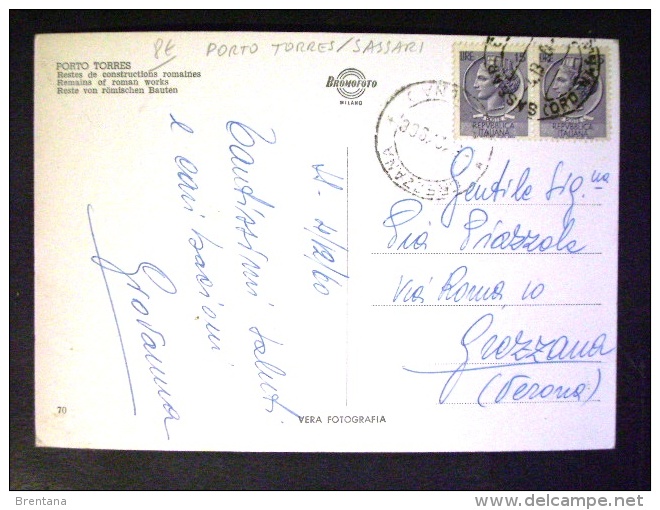 8€ PORTO TORRES/SASSARI
PORTO TORRES
Restes de constructions romaines
Remains of roman works
Reste von römischen Bauten
BROMOFOTO
MILANO
LIRE 15
POSTE
REPVBBLICA
ITALIANA
POSTE
REPVBBLICA
ITALIANA
SASSARI
GREZZANA
Tantissimi saluti
e cari bacioni
Giovanna
4/12/60
Gentile Sig.na
Pia Piazzola
Via Roma, 10
Grezzana
(Verona)
70
VERA FOTOGRAFIA
Brentana
delcampe.net